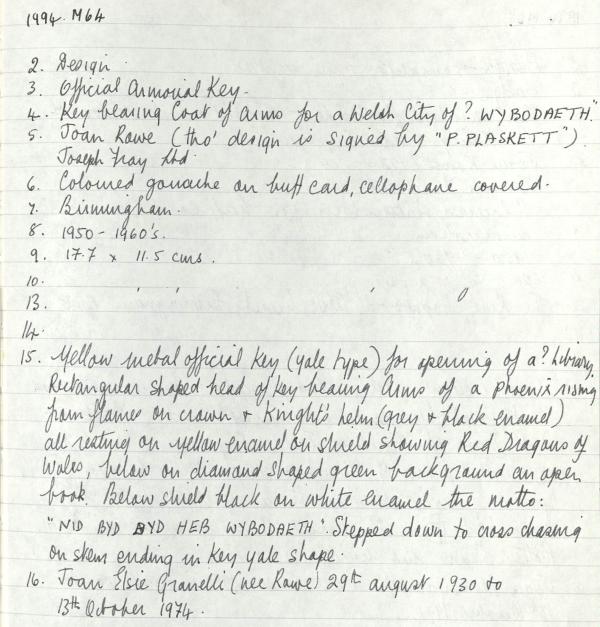 1994. M64
2. Design
3. Official Armorial Key.
4. Key bearing Coat of Arms for a Welsh City of? WYBODAETH."
5. Joan Rawe (tho' design is signed by "P. PLASKETT").
Joseph Fray Ltd.
6. Coloured gouache on buff card, cellophane covered.
7. Birmingham.
8. 1950 - 1960's.
9. 17.7 x 11.5 cms.
10.
13.
14.
15. Yellow metal official key (yale type) for opening of a? Library.
Rectangular shaped head of key bearing Arms of a phoenix rising
from flames on crown + Knight's helm (grey + black enamel)
all resting on yellow enamel on shield showing Red Dragons of
Wales, below on diamond shaped green background an open
book. Below shield black on white enamel the motto:
"NID BYD BYD HEB WYBODAETH". Stepped down to cross chasing
on stem ending in key yale shape.
16. Joan Elsie Granelli (nee Rawe) 29th august 1930 to
13th October 1974.